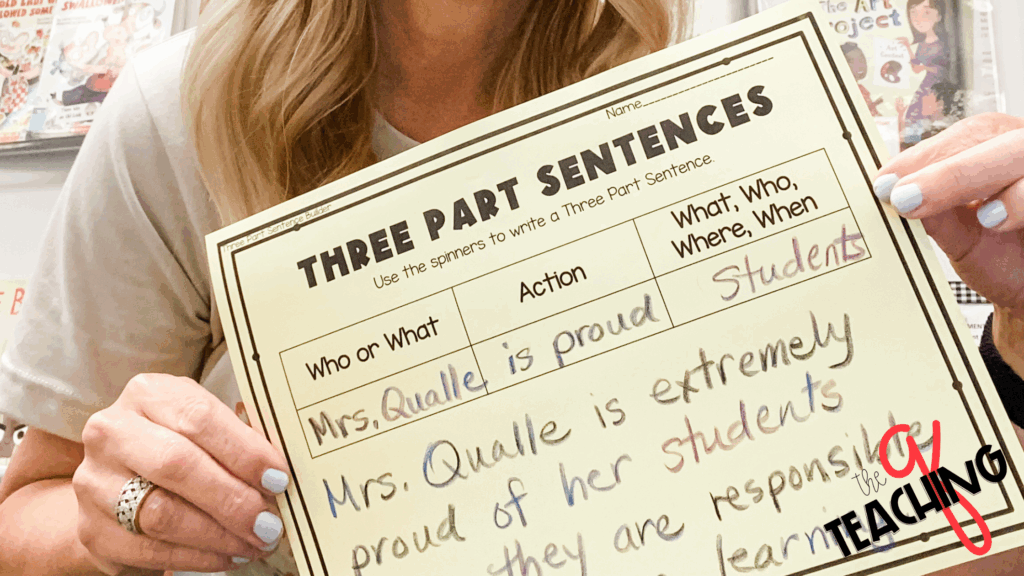 The Art
Project
Name
Three Part Sentence Builder
THREE PART SENTENCES
Use the spinners to write a Three Part Sentence.
Who or What
Action
What, Who,
Where, When
Mrs. Qualle
is proud
Students
Mrs. Qualle is extremely
proud of her students
they are responsible
learning
the
TEACHING